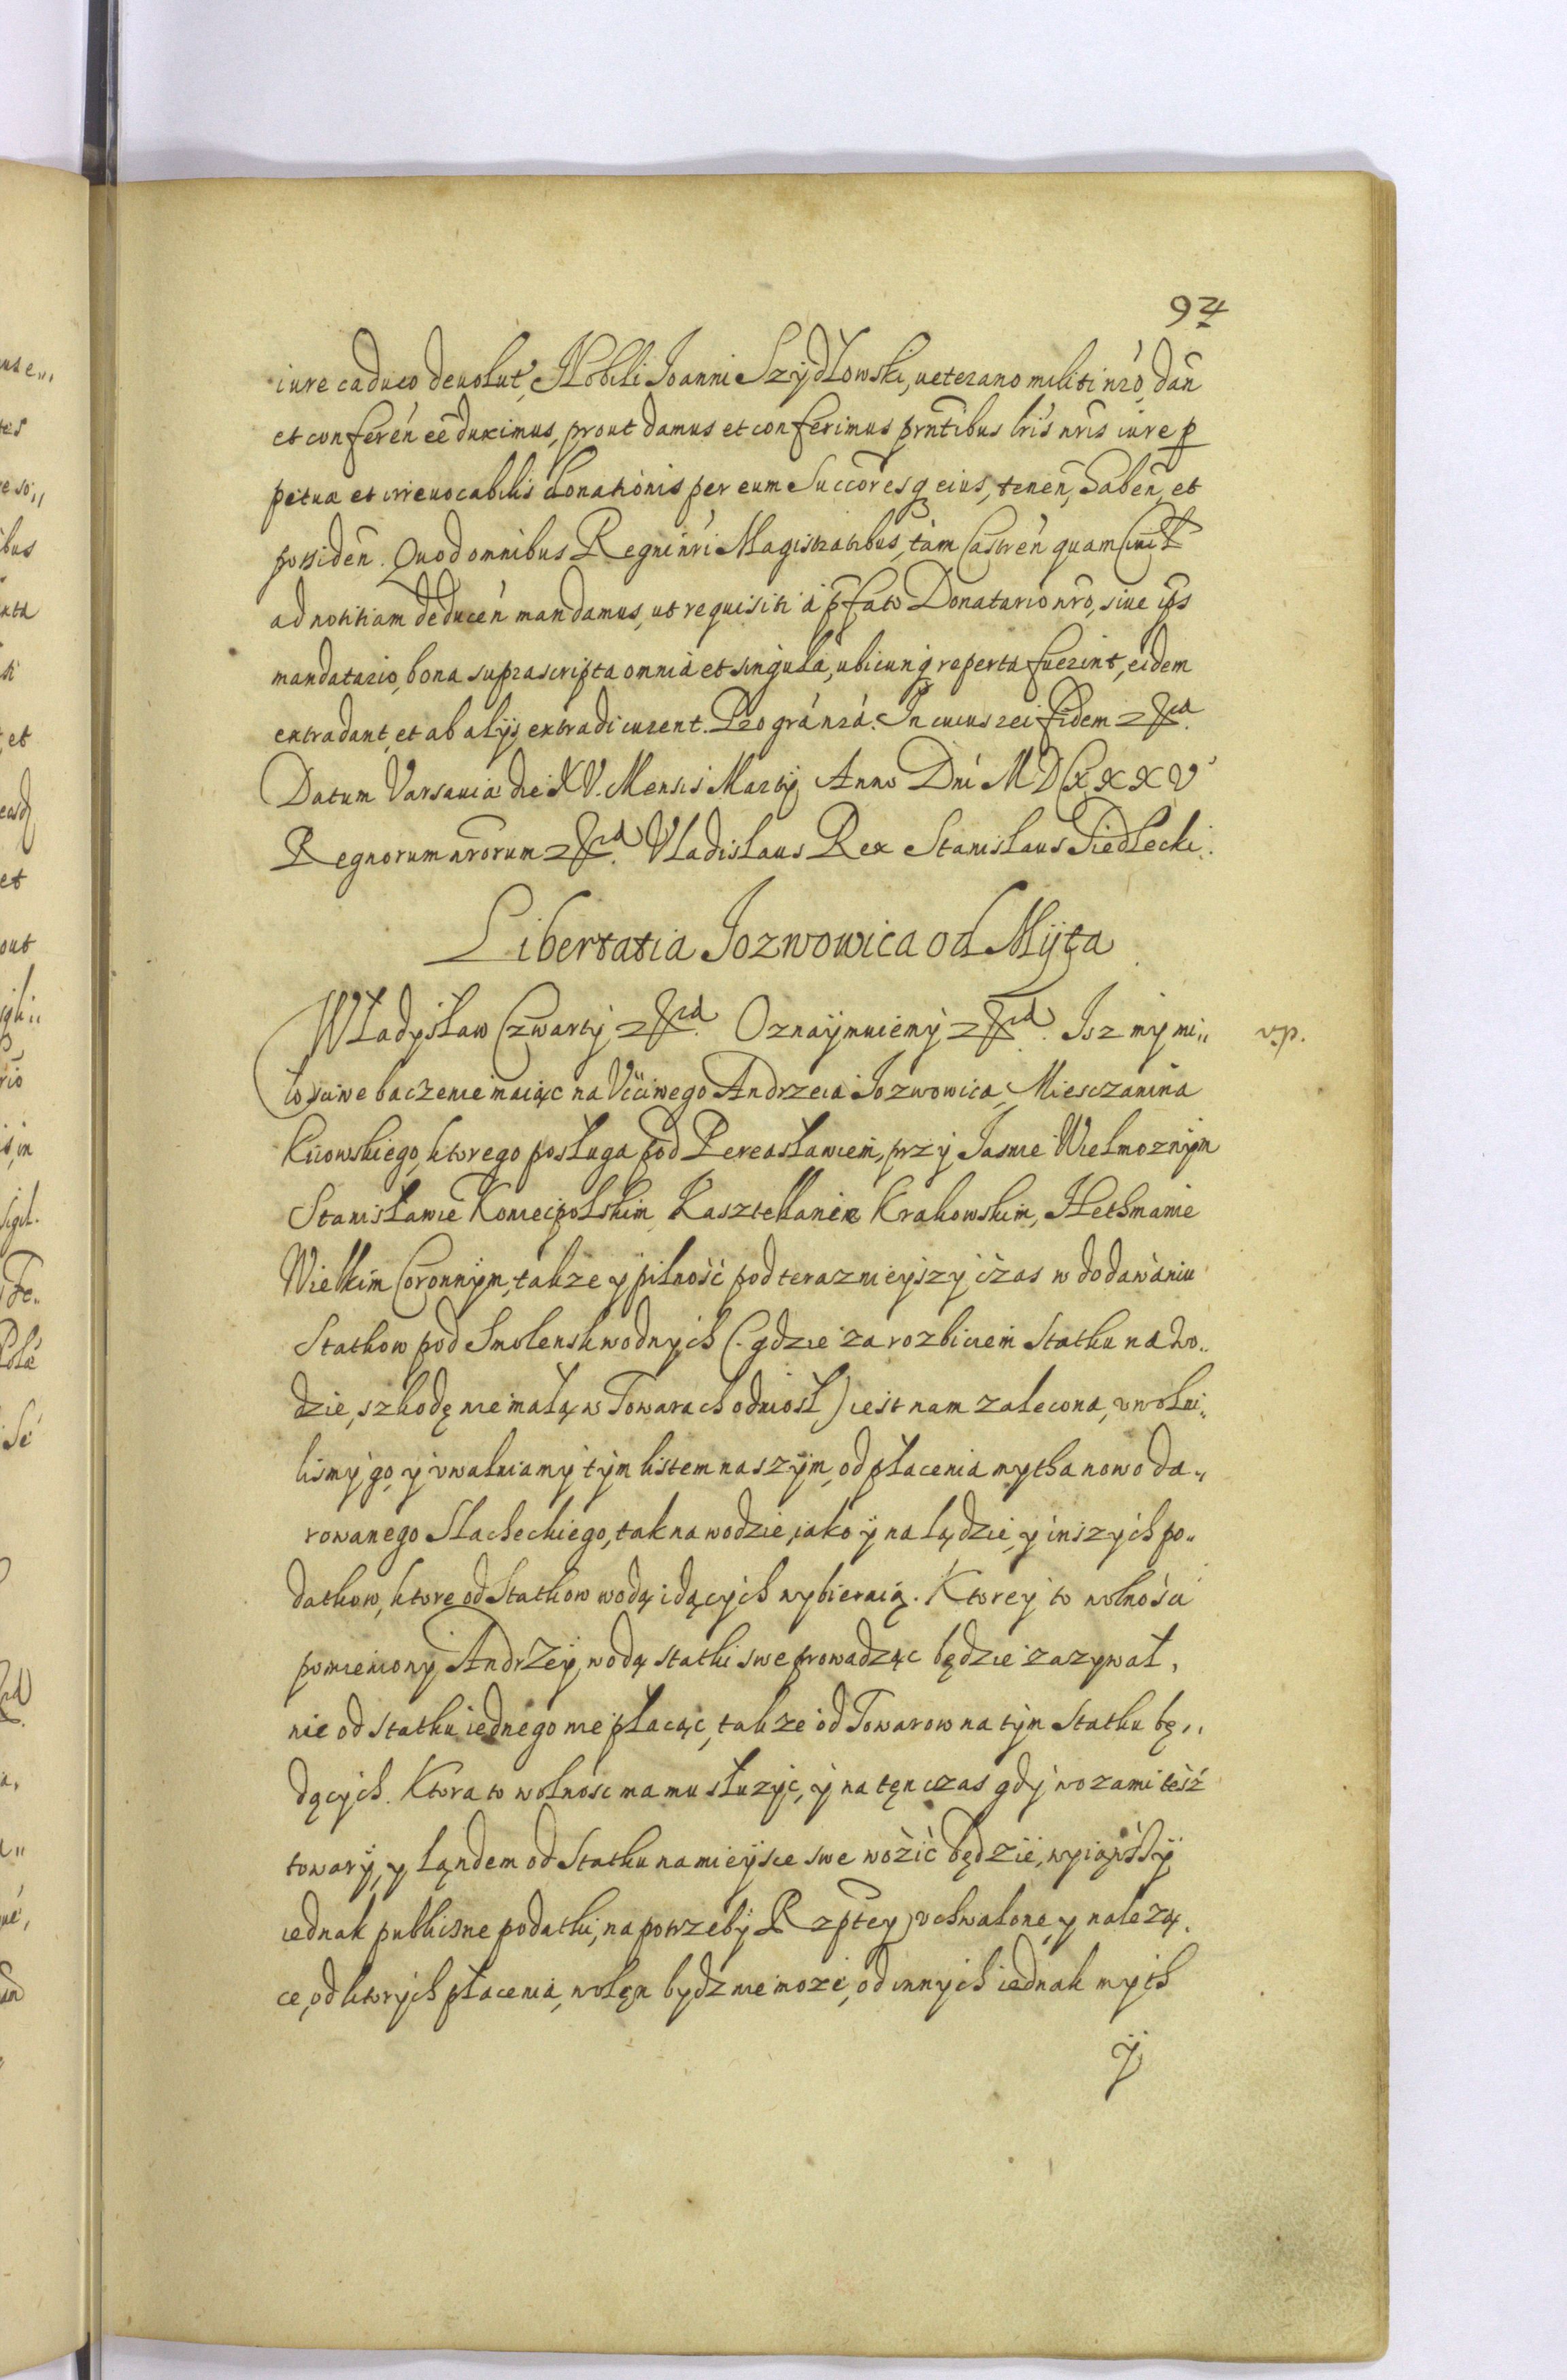 94
iure caduco deuolut, Nobili Joanni Szÿdłowski, ueterano militi nro, dañ
et conferén eẽ duximus, prout damus et conferimus prñtibus lris nris iure p
petuæ et irreuocabilis donationis per eum Succoresq eius, tenen, haben, et
possiden. Quod omnibus Regni nri Magistratibus, tàm Castren quam Ciuil
ad notitiam deducen mandamus, ut requisiti à pfato Donatario nro, siue ips
mandatario, bona suprascripta omnia et singula, ubicunq reperta fuerint, eidem
extradant, et ab alijs extradi curent. Pro gra nra. In cuius rei fidem
Datum Varsauiæ die XV. Mensis Martij Anno Dni MDCXXXV
Regnorum nrorum Vladislaus Rex Stanislaus Siedlecki.
Libertatia Jozwowica od Mÿta
Władysław Czwartÿ Oznaÿmuiemÿ Isz mÿ mi„
v.p.
łosciwe baczenie maiąc na Vćciwego Andrzeia Jozwowica, Miesczanina
Kiiowskiego, ktorego posługa pod Pereasławiem, przÿ Jasnie Wielmoznÿm
Stanisławie Koniecpolskim Kasztellanie Krakowskim, Hethmanie
Wielkim Coronnÿm, takze ÿ pilność pod terazniejszÿ czas w dodawaniu
Statkow pod Smolensk wodnÿch (. gdzie za rozbiciem Statku na wo„
dzie, szkodę niemałą w Towarach odniosł) iest nam zalecona, vwolni„
lismÿ go, ÿ vwalniamÿ tÿm listem naszÿm, od płacenia mytha nowo da„
rowanego Slacheckiego, tak na wodzie, iako ÿ na lądzie, ÿ inszÿch po„
datkow, ktore od Statkow wodą idącÿch wybieraią. Ktoreÿ to wolności
pomieniony Andrzeÿ, wodą statki swe prowadząc będzie zazywał,
nie od statku iednego nie płacąc, takze od Towarow na tÿm Statku bę„
dącÿch. Ktora to wolnosc ma mu słuzÿc, ÿ na tęn czas gdÿ wozami tesz
towarÿ, ÿ ląndem od Statku na mieÿsce swe woźić będzie, wyiąwsÿ
iednak publicne podatki, na potrzebÿ Rzptey vchwalone, y nalezą„
ce, od ktorÿch płacenia, wolęn bydz nie może, od innÿch iednak mÿth
ÿ